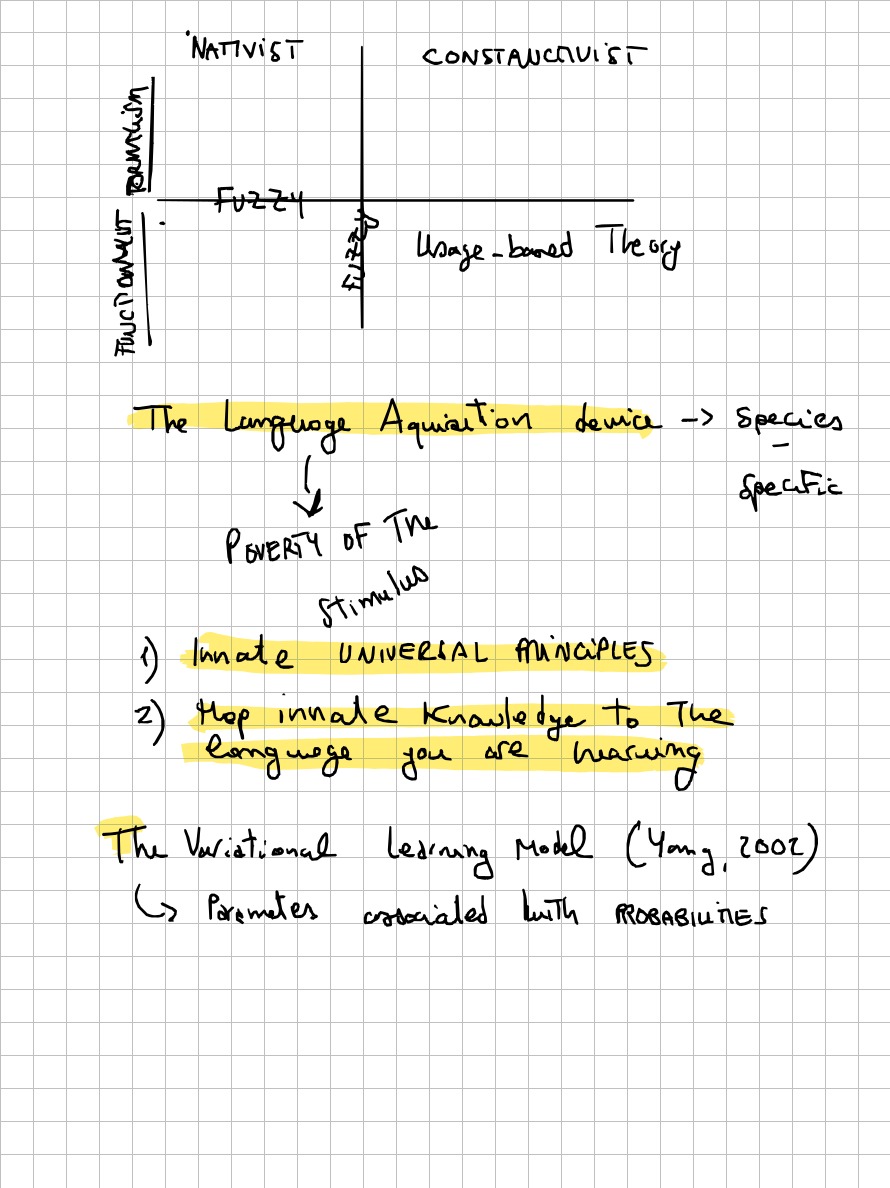 NATIVIST
CONSTRUCTIVIST
FORMALISM
FUZZY
FUZZY
Usage-based Theory
The Language Aquisition device -> Species
-
specific
POVERTY OF THE
stimulus
1) Innate UNIVERSAL PRINCIPLES
2) Map innate Knowledge to The
language you are hearing
The Variational Learning Model (Yang, 2002)
↳ Parameters associated with PROBABILITIES